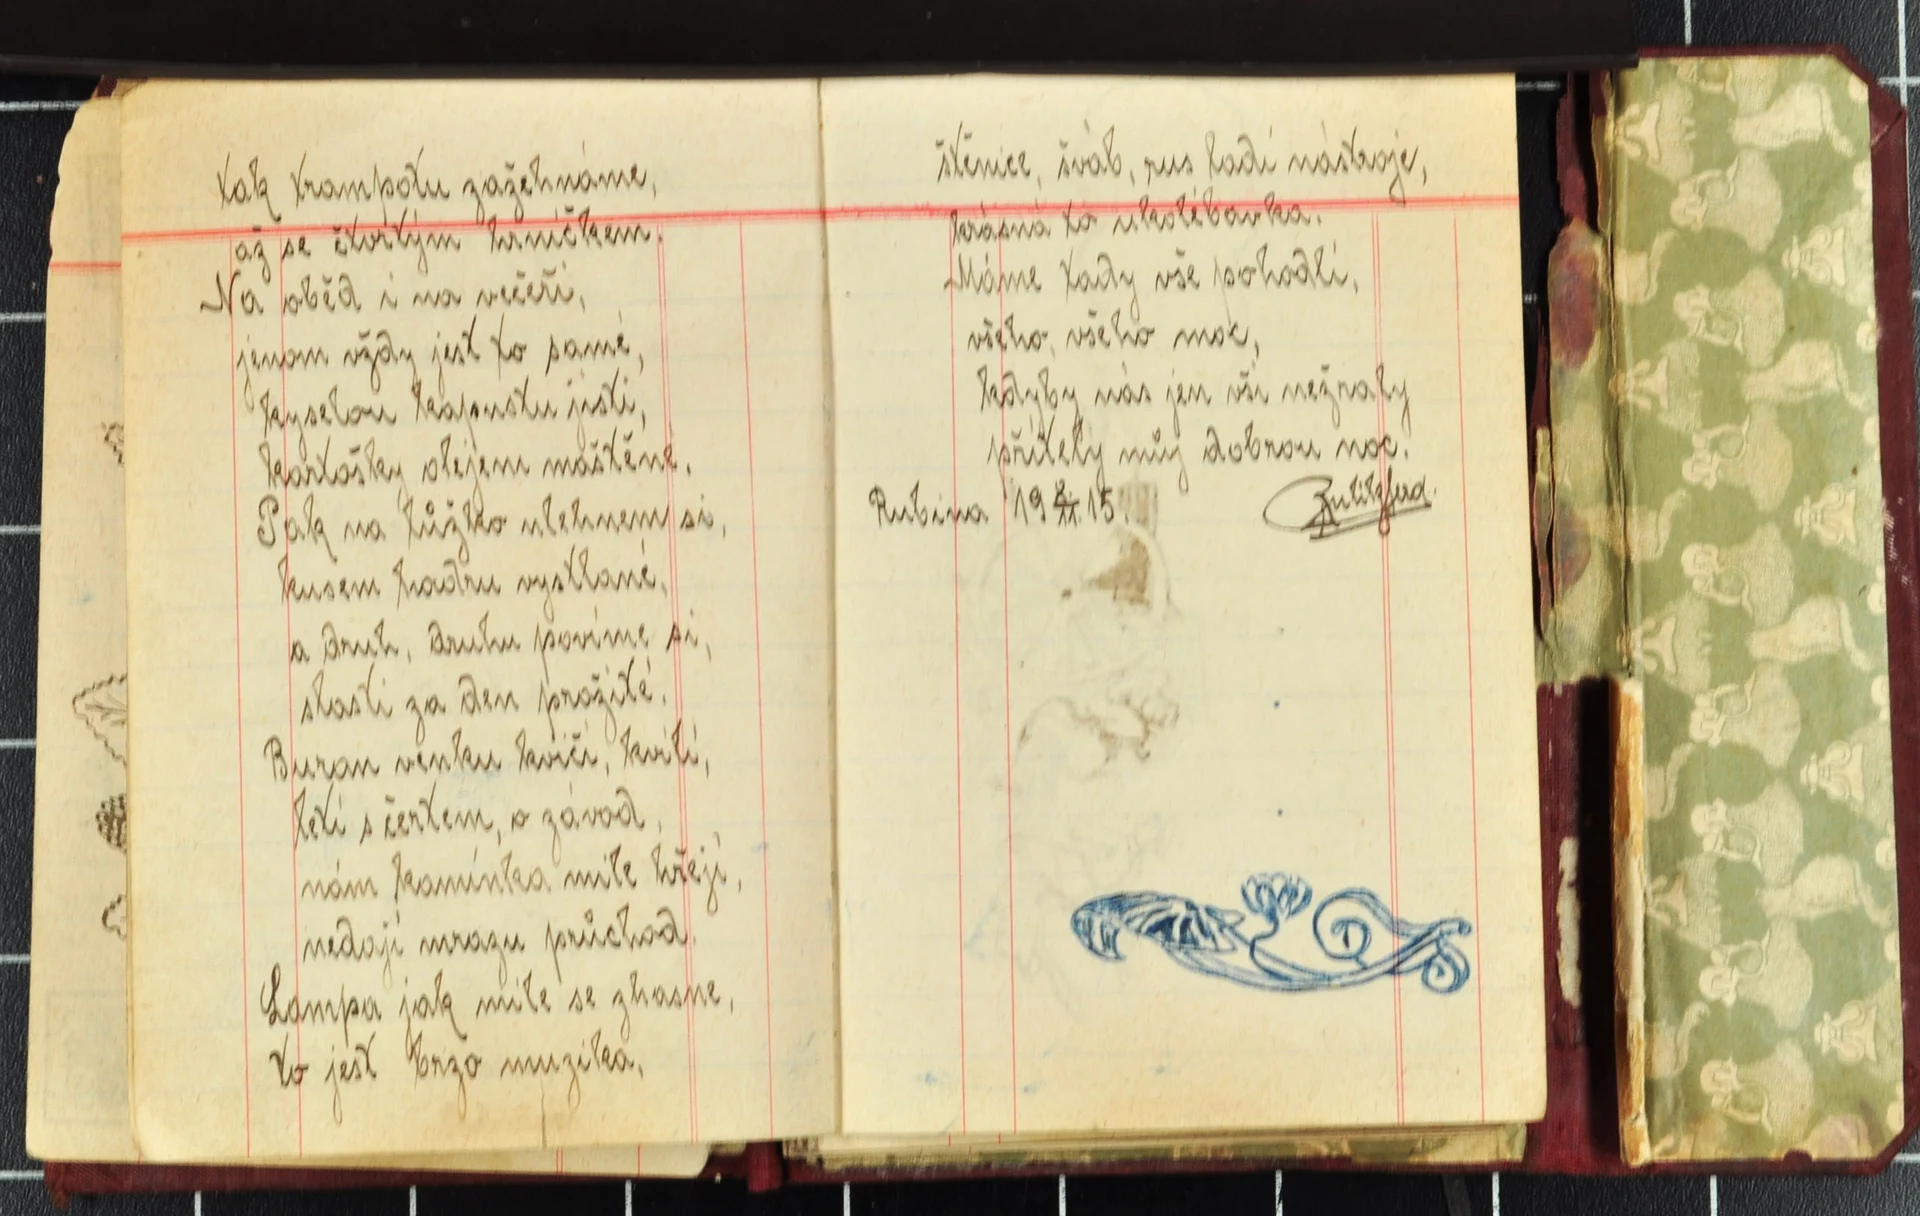 tak trampotu zažehnáme,
až se čtvrtým hrníčkem.
Na oběd i na večeři,
jenom vždy jest to samé,
kyselou kapustu jísti,
kartošky olejem maštěné.
Pak na lůžko ulehnem si,
kusem hadru vystlané,
a druh, druhu povíme si,
slasti za den prožité.
Buran venku kvičí, kvílí,
letí s čertem, o závod,
nám kamínka mile hřejí,
nedají mrazu průchod.
Lampa jak mile se zhasne,
to jest brzo muzika,
štěnice, šváb, rus ladí nástroje,
krásná to ukolébavka.
Máme tady vše pohodlí,
všeho, všeho moc,
kdyby nás jen vši nežraly
přítely můj dobrou noc.
Rubina 19 8./II. 15.